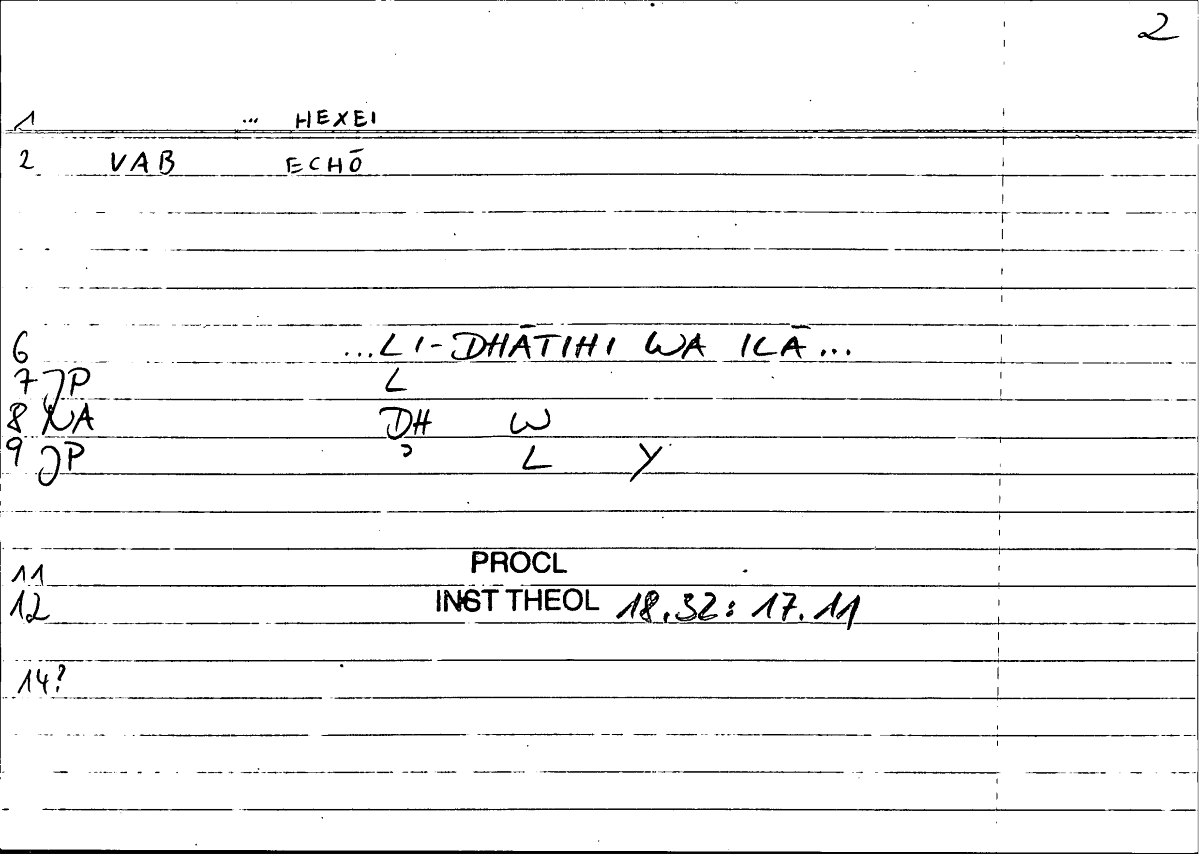 2
1 ... HEXEI
2 VAB ECHŌ
6 ...LI-DHĀTIHI WA ILĀ...
7 JP L
8 NA DH W
9 JP ʾ L Y
11 PROCL
12 INST THEOL 18.32: 17.11
14?